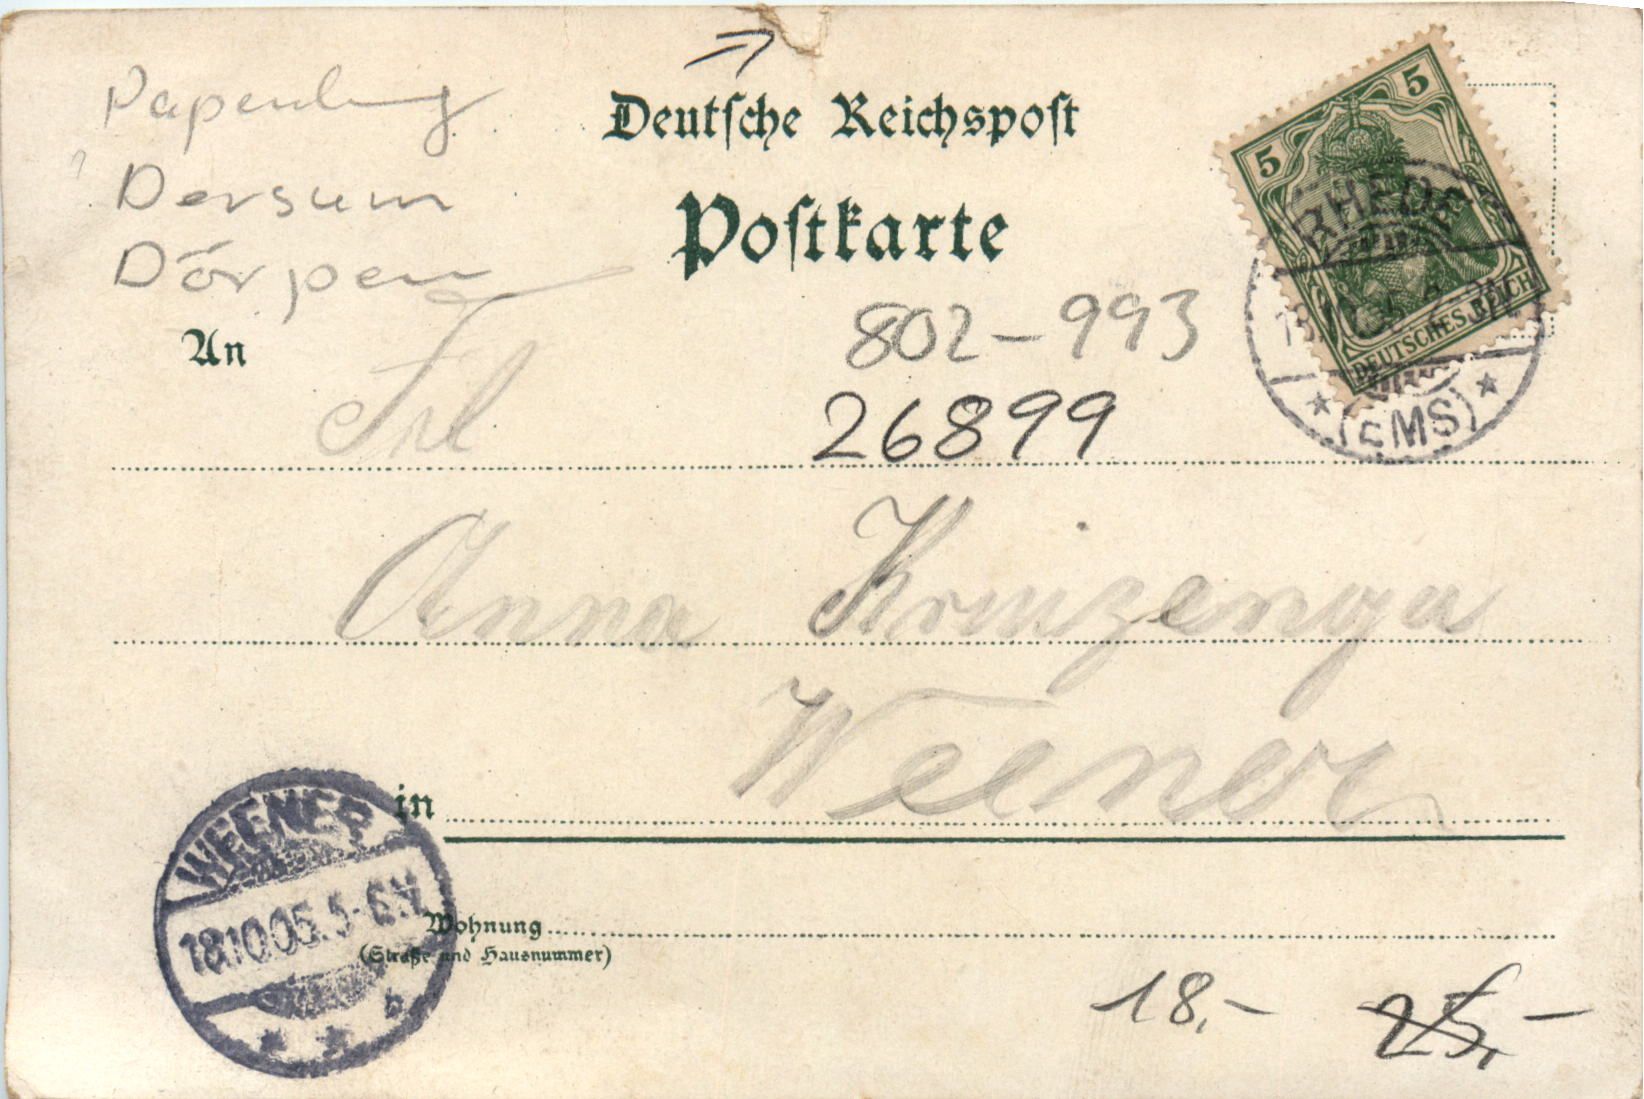 Papenburg
Deutsche Reichspost
? Dersum
Postkarte
Dörpen
5 5
DEUTSCHES REICH
RHEDE
(EMS)
802-993
An Frl
26899
Anna Kruizenga
Weener
in
WEENER
18.10.05. 5-6 N
b
Wohnung
(Straße und Hausnummer)
18,- 25,-